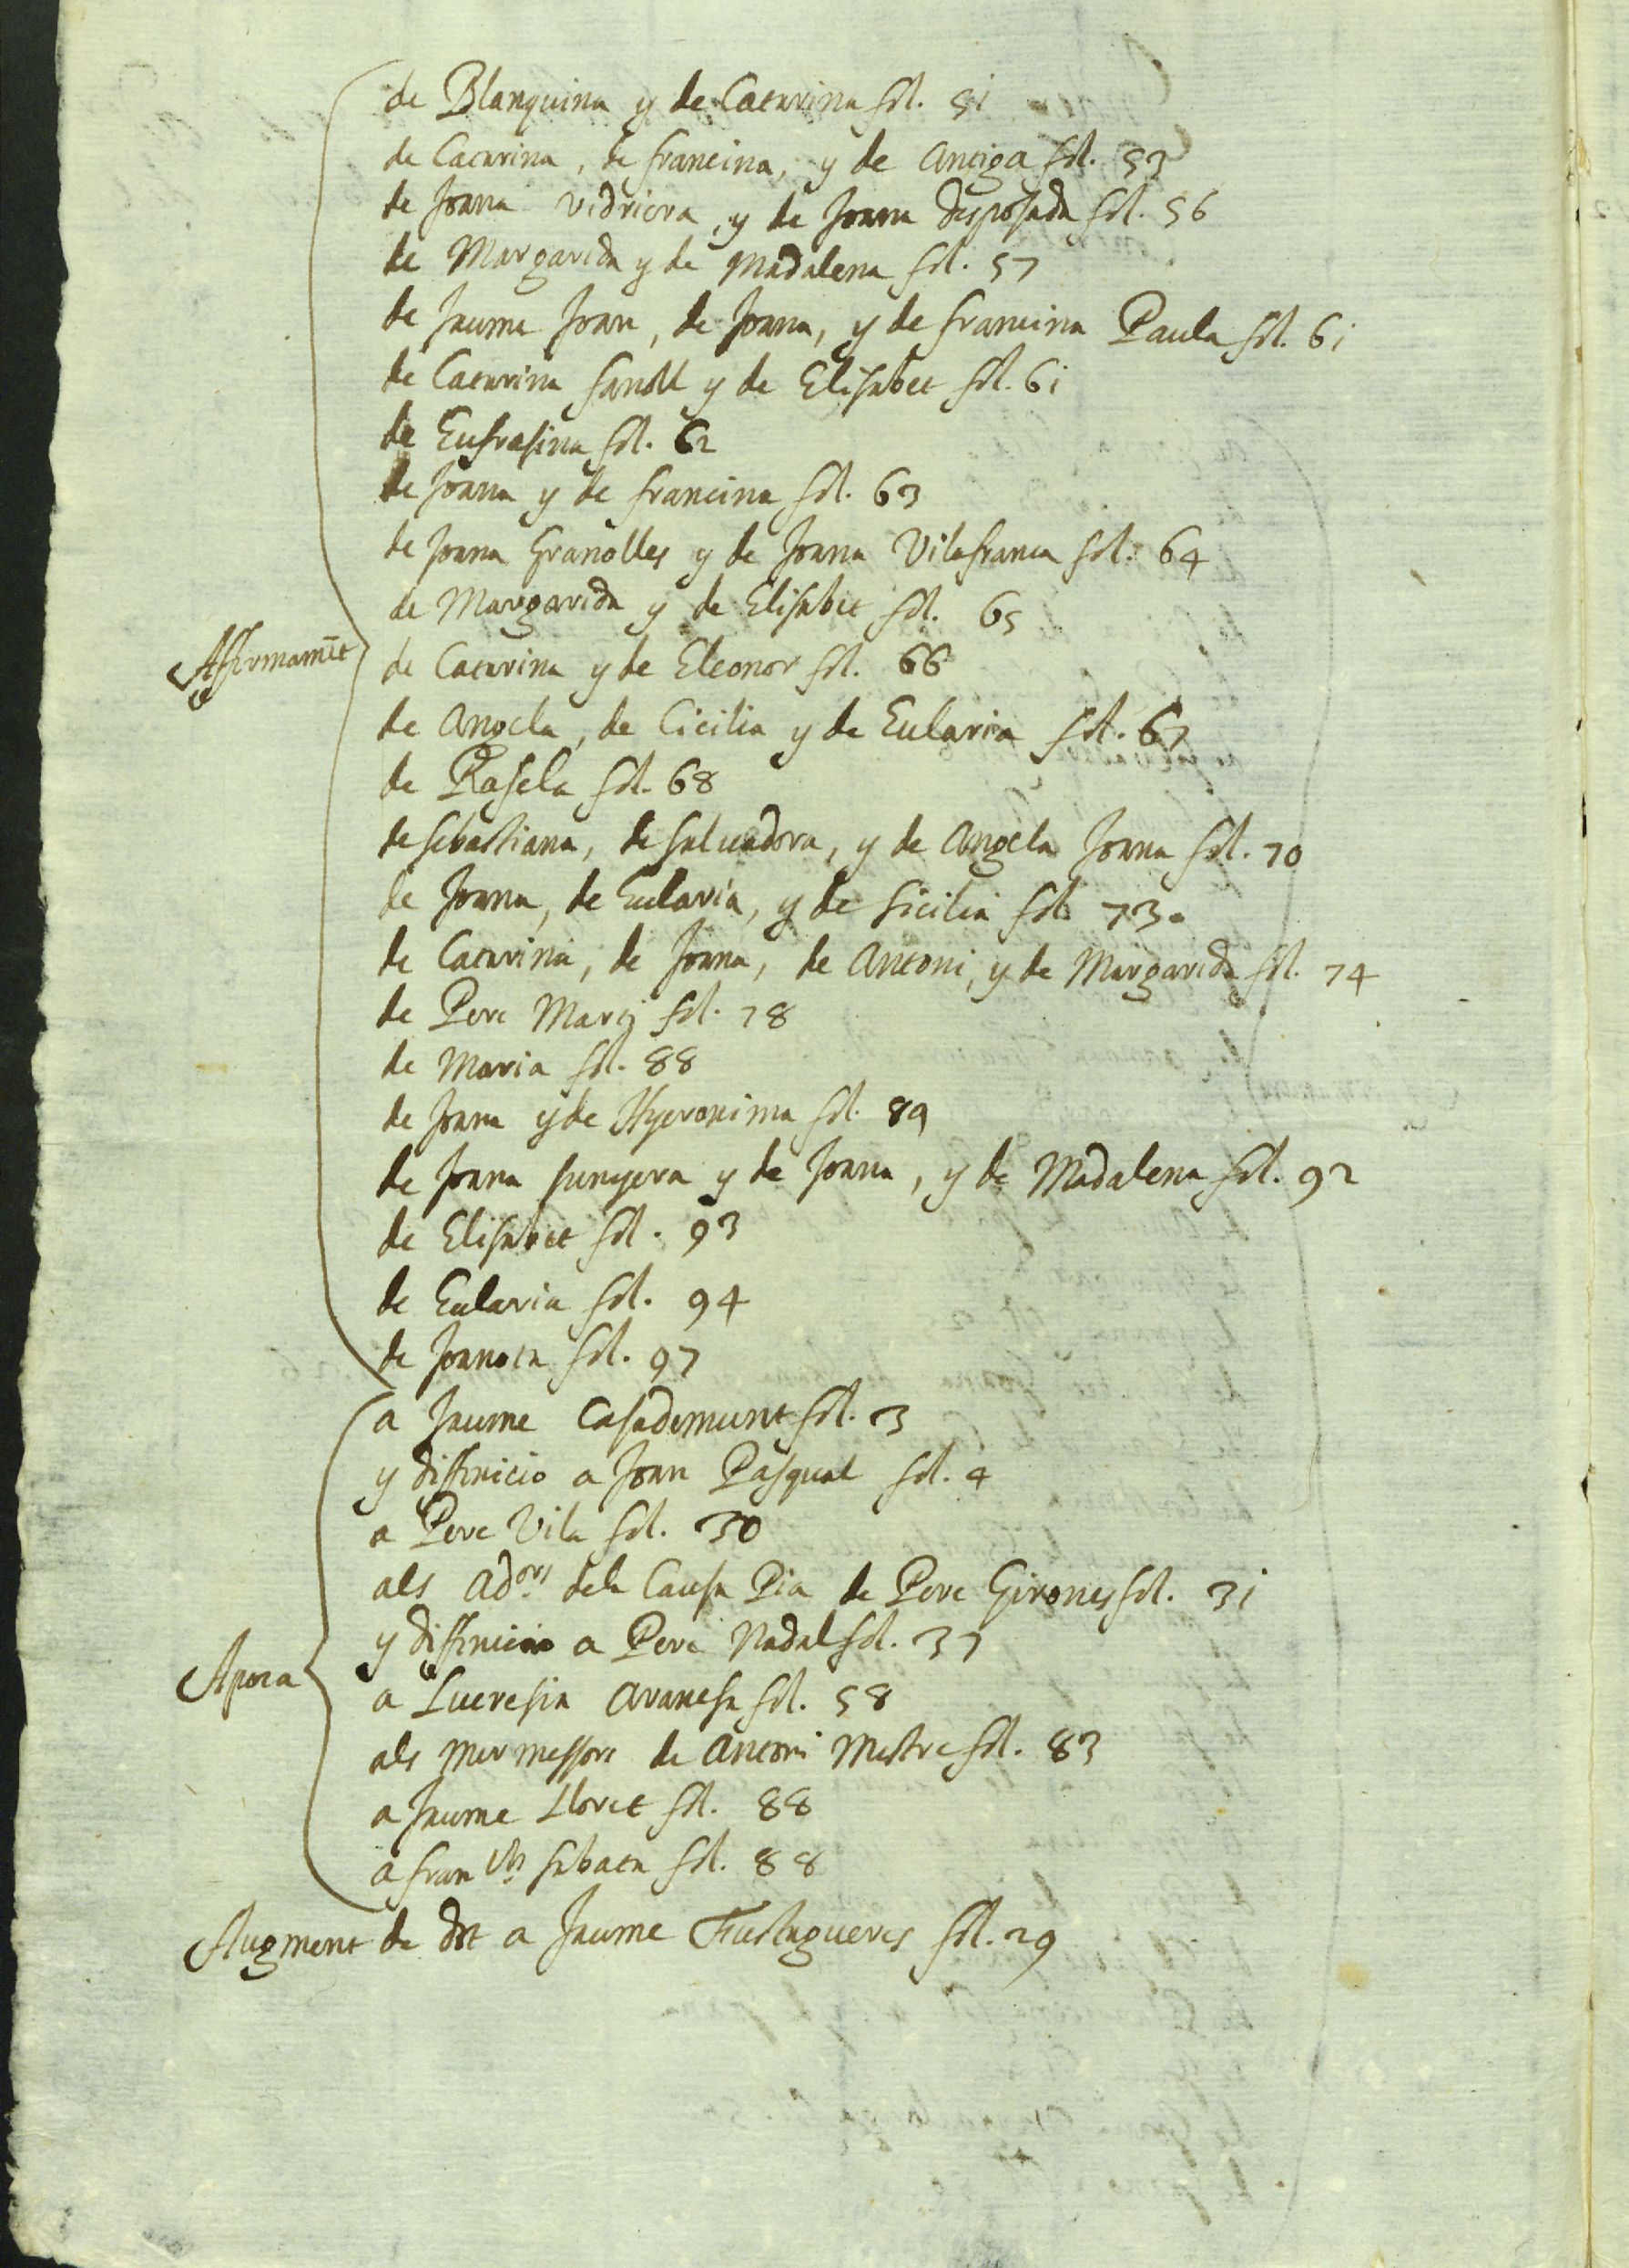 de Blanquina y de Catarina fol. 51
de Catarina, de francina, y de Antiga fol. 53
de Joana vidriera, y de Joana desposada fol. 56
de Margarida y de Madalena fol. 57
de Jaume Joan, de Joana, y de francina Paula fol. 61
de Catarina y de Elisabet fol. 61
de Eufrasina fol. 62
de Joana y de francina fol. 63
de Joana Granolles y de Joana Vilafranca fol. 64
de Margarida y de Elisabet fol. 65
Affirmamēt de Catarina y de Eleonor fol. 66
de Angela, de Cicilia y de Eularia fol. 67
de Rafela fol. 68
de sebastiana, de salvadora, y de Angela Joana fol. 70
de Joana, de Eularia, y de Sicilia fol. 73.
de Catarina, de Joana, de Antoni, y de Margarida fol. 74
de Pere Marti fol. 78
de Maria fol. 88
de Joana y de Hyeronima fol. 89
de Joana sunyera y de Joana, y de Madalena fol. 92
de Elisabet fol. 93
de Eularia fol. 94
de Joanota fol. 97
a Jaume Casademunt fol. 3
y diffinicio a Joan Pasqual fol. 4
a Pere Vila fol. 30
als adors dela Causa Pia de Pere Girones fol. 31
y diffinicio a Pere Nadal fol. 37
Apoca a Lucresia Aranesa fol. 58
als mermessors de Antoni Mestre fol. 83
a Jaume Lloret fol. 88
a franch sabata fol. 88
Augment de dot a Jaume Fustagueres fol. 29